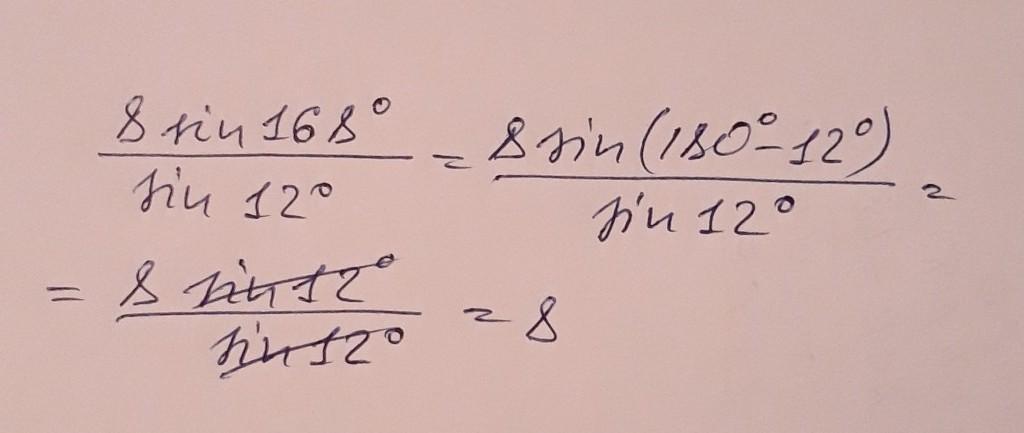 8 sin 168° / sin 12° = 8 sin (180° - 12°) / sin 12° =
= 8 sin 12° / sin 12° = 8